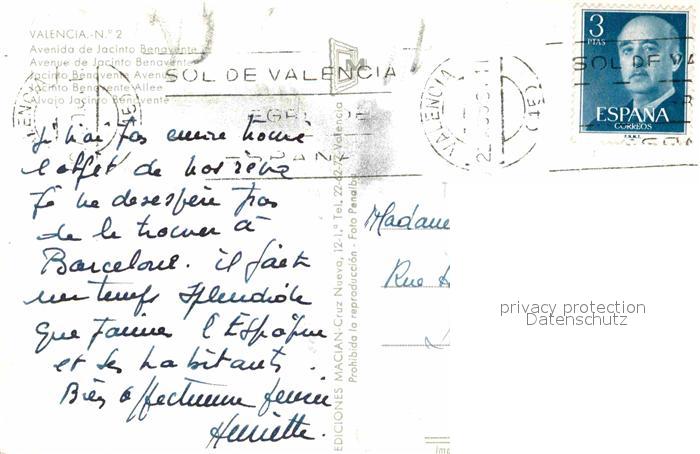 VALENCIA.-N.º 2
Avenida de Jacinto Benavente
Avenue de Jacinto Benavente
Jacinto Benavente Avenue
Jacinto Benavente Allee
Alvajo Jacinto Benavente
SOL DE VALENCIA
VALENCIA
3
PTAS
SOL DE VA
ESPAÑA
CORREOS
F.N.M.T.
Je n'ai pas encore trouvé
l'objet de nos rêves
Je ne désespère pas
de le trouver à
Barcelone. il fait
un temps splendide
que j'aime l'Espagne
et ses habitants.
Bien affectueuse pensée
Henriette.
EDICIONES MACIAN-Cruz Nueva, 12-1.º Tel. 22-62 Valencia
Prohibida la reproducción - Foto Penalba
Madame
Rue
privacy protection
Datenschutz